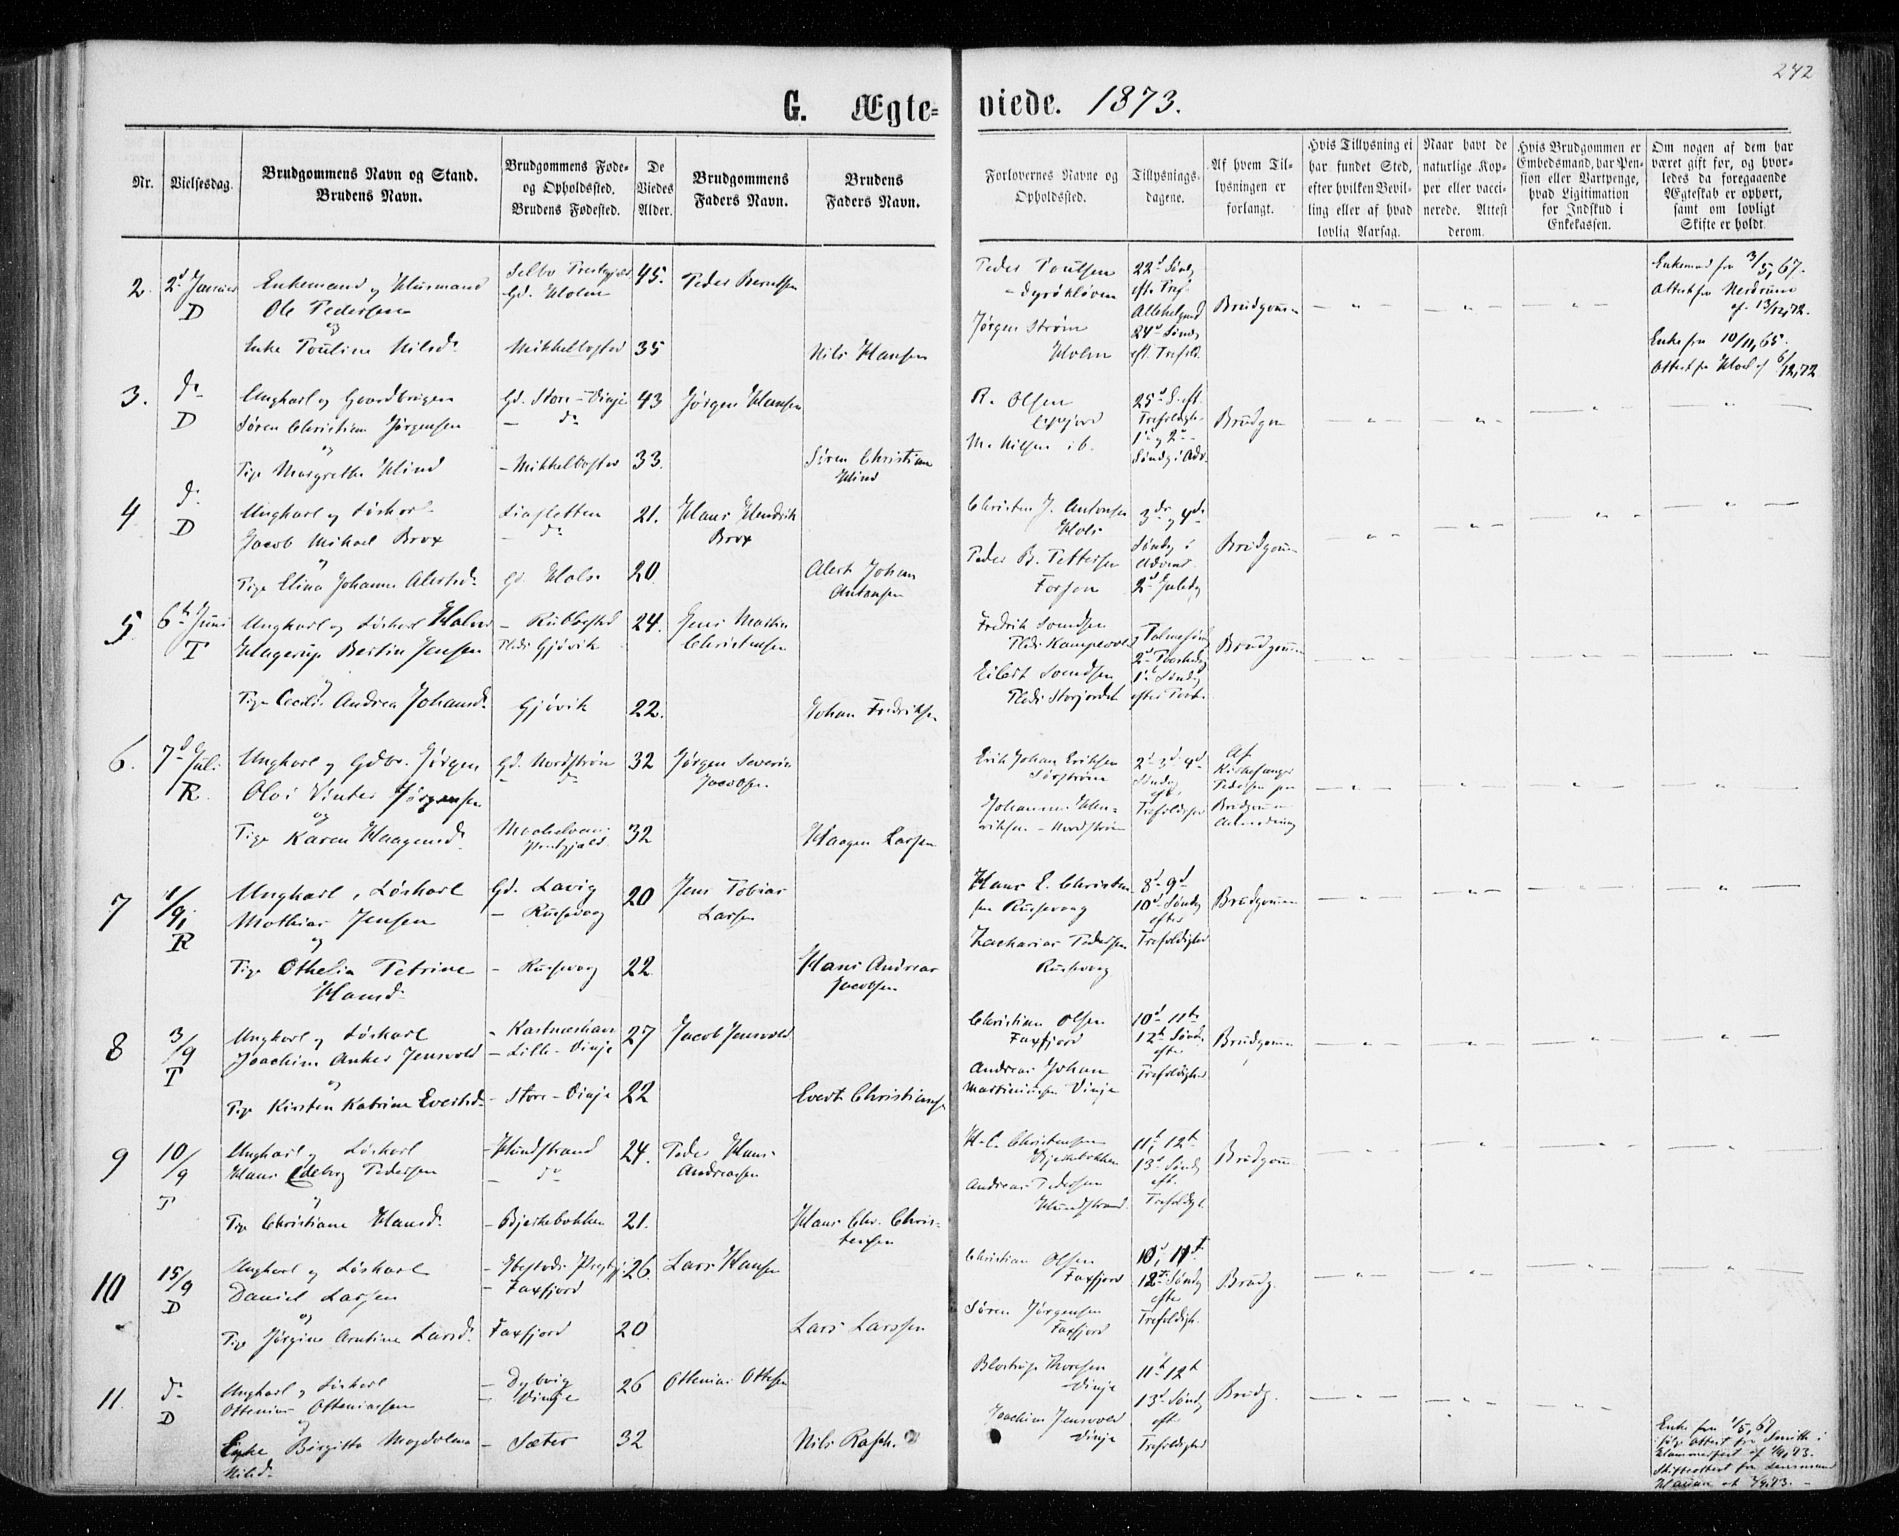 242
G. Ægte=viede. 1873.
Nr.
Vielsesdag.
Brudgommens Navn og Stand.
Brudens Navn.
Brudgommens Føde-
og Opholdssted.
Brudens Fødested.
De
Viedes
Alder.
Brudgommens
Faders Navn.
Brudens
Faders Navn.
Forlovernes Navne og
Opholdssted.
Tillysnings-
dagene.
Af hvem Til-
lysningen er
forlangt.
Hvis Tillysning ei
har fundet Sted,
efter hvilken Bevil-
ling eller af hvad
lovlig Aarsag.
Naar havt de
naturlige Kop-
per eller vacci-
nerede. Attest
derom.
Hvis Brudgommen er
Embedsmand, har Pen-
sion eller Vartpenge,
hvad Ligitimation
for Indskud i
Enkekassen.
Om nogen af dem har
været gift før, og hvor-
ledes da foregaaende
Ægteskab er ophørt,
samt om lovligt
Skifte er holdt.
2. 2d Januar D
Enkemand og Husmand
Ole Pedersen
og
Enke Pouline Nilsd.
Selbo Prestegjæld
Gd. Holm
Mikkelbostad
45. 35
Peder Berntsen
Nils Hansen
Peder Poulsen
Jørgen Strøm
Holm
22d Søndg
eft. Tref.
Allehelgend
24d Søndg
eft. Trefold.
Brudgommen
Enkemand fra 3/5, 67.
Attest fra
af 13/12, 72.
Enke fra 10/11, 65.
Attest fra af 6/12, 72
3. do D
Ungkarl og Gaardbruger
Søren Christian Jørgensen
og
Pige Margrethe Hind
Gd. Store-Vinje
— do
— Mikkelbostad
43 33.
Jørgen Hansen
Søren Christian
Hind
R. Olsen
M. Nilsen ib.
25d S. eft.
Trefoldigh.
1d og 2d
Søndg i Adv.
Brudgom
4 do D
Ungkarl og Løskarl
Jacob Mikael Brox
og
Pige Elina Johanna Alertsd.
Liasletten
— do
Gd. Hals
21. 20
Hans Hendrik
Brox
Alert Johan
Antonsen
Christen J. Antonsen
Hals
Peder B. Pettersen
Forsøn
3de og 4de
Søndg i
Advent
2d Juledg
Brudgommen
5 6te Juni T
Ungkarl og Løskarl Halvor
Hagerup Bertin Jensen
og
Pige Cecilie Andrea Johansd.
— Rublystad
Plds Gjøvik
Gjøvik
24. 22.
Jens Martin
Christensen
Johan Fredriksen
Fredrik Svendsen
Plds Kampevold
Eilert Svendsen
Plds Storjordet
Palmesøndg
2d Paaskedg
1d Søndg
efter Paas.
Brudgommen
6. 7d Juli R.
Ungkarl og Gdbr. Jørgen
Olai Vinter Jørgensen
og
Pige Karen Haagensd.
Gd. Nordstrøm
— do
32 32
Jørgen Severin
Jacobsen
Haagen Larsen
Erik Johan Eriksen
Sørstrøm
Johannes Hen-
riksen — Nordstrøm
2d 3d 4d
Søndg
eft.
Trefoldighed
Af
Kirkesanger
Pedersen paa
Brudgommens
Anmodning
7 1/9, R
Ungkarl, Løskarl
Mathias Jensen
og
Pige Othelia Petrine
Hansd.
Gd. Lavig
— Russevaag
— Russevaag
20 22
Jens Tobias
Larsen
Hans Andreas
Jacobsen
Hans E. Christen-
sen Russevaag
Zacharias Pedersen
Russevaag
8d 9d
10d Søndg
efter
Trefoldighed
Brudgommen
8 3/9 T
Ungkarl og Løskarl
Joachim Anker Jensvold
og
Pige Kirsten Katrine Evertsd.
- Kastneshavn
- Lille-Vinje
- Store-Vinje
27 22
Jacob Jensvold
Evert Christiansen
Christian Olsen
Faxfjord
Andreas Johan
Martinussen Vinje
10d 11te
12te Søndg
efter
Trefoldighed
Brudgommen
9 10/9 T
Ungkarl og Løskarl
Hans Edeborg Pedersen
og
Pige Christiane Hansd.
- Hundstrand
— do
- Bjerkebakken
24. 21.
Peder Hans-
Andreassen
Hans Chr. Chris-
tensen
H. C. Christensen
Bjerkebakken
Andreas Pedersen
Hundstrand
11te, 12te
13d Søndg
eft.
Trefoldgh.
Brudgom
10 15/9 D
Ungkarl og Løskarl
Daniel Larsen
og
Pige Jørgine Arntine Larsd.
- Ibestads Prestgj.
- Faxfjord
Faxfjord
26. 20
Lars Hansen
Lars Larssen
Christian Olsen
Faxfjord
Søren Jørgensen
Faxfjord
10d, 11te
12te Søndg
efter
Trefoldigh.
Brudg.
11. do D
Ungkarl og Løskarl
Ottenius Otteniussen
og
Enke Birgitta Magdalena
Nilsd.
— Dybvig
— Vinje
— Sæter
26 32
Ottenius Ottesen
Nils Rasch.
Blostrup Thoresen
Vinje
Joachim Jensvold
Vinje
11te 12te
13d Søndg
eft.
Trefoldighed
Brudg.
Enke fra 1/5, 69
ifølge Attest fra Smith i
Hammerfest af 1/9, 73.
Skifteattest fra Lensmand
Hanson af 3/9 73.